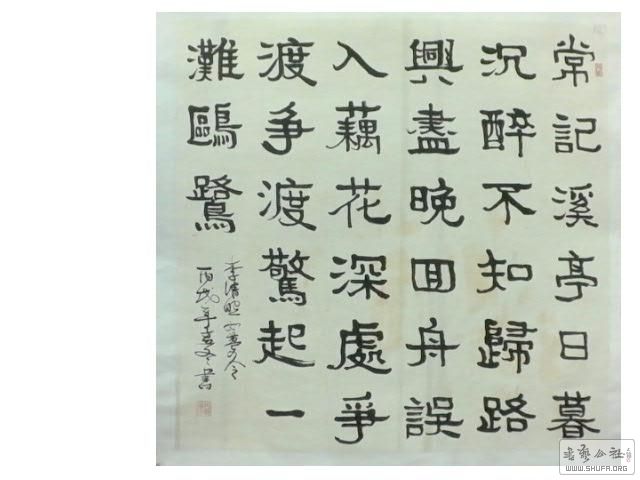 常記溪亭日暮
沉醉不知歸路
興盡晚回舟誤
入藕花深處爭
渡争渡驚起一
灘鷗鷺
李清照如夢令
丙戌年孟冬書
書藝公社
WWW.SHUFA.ORG